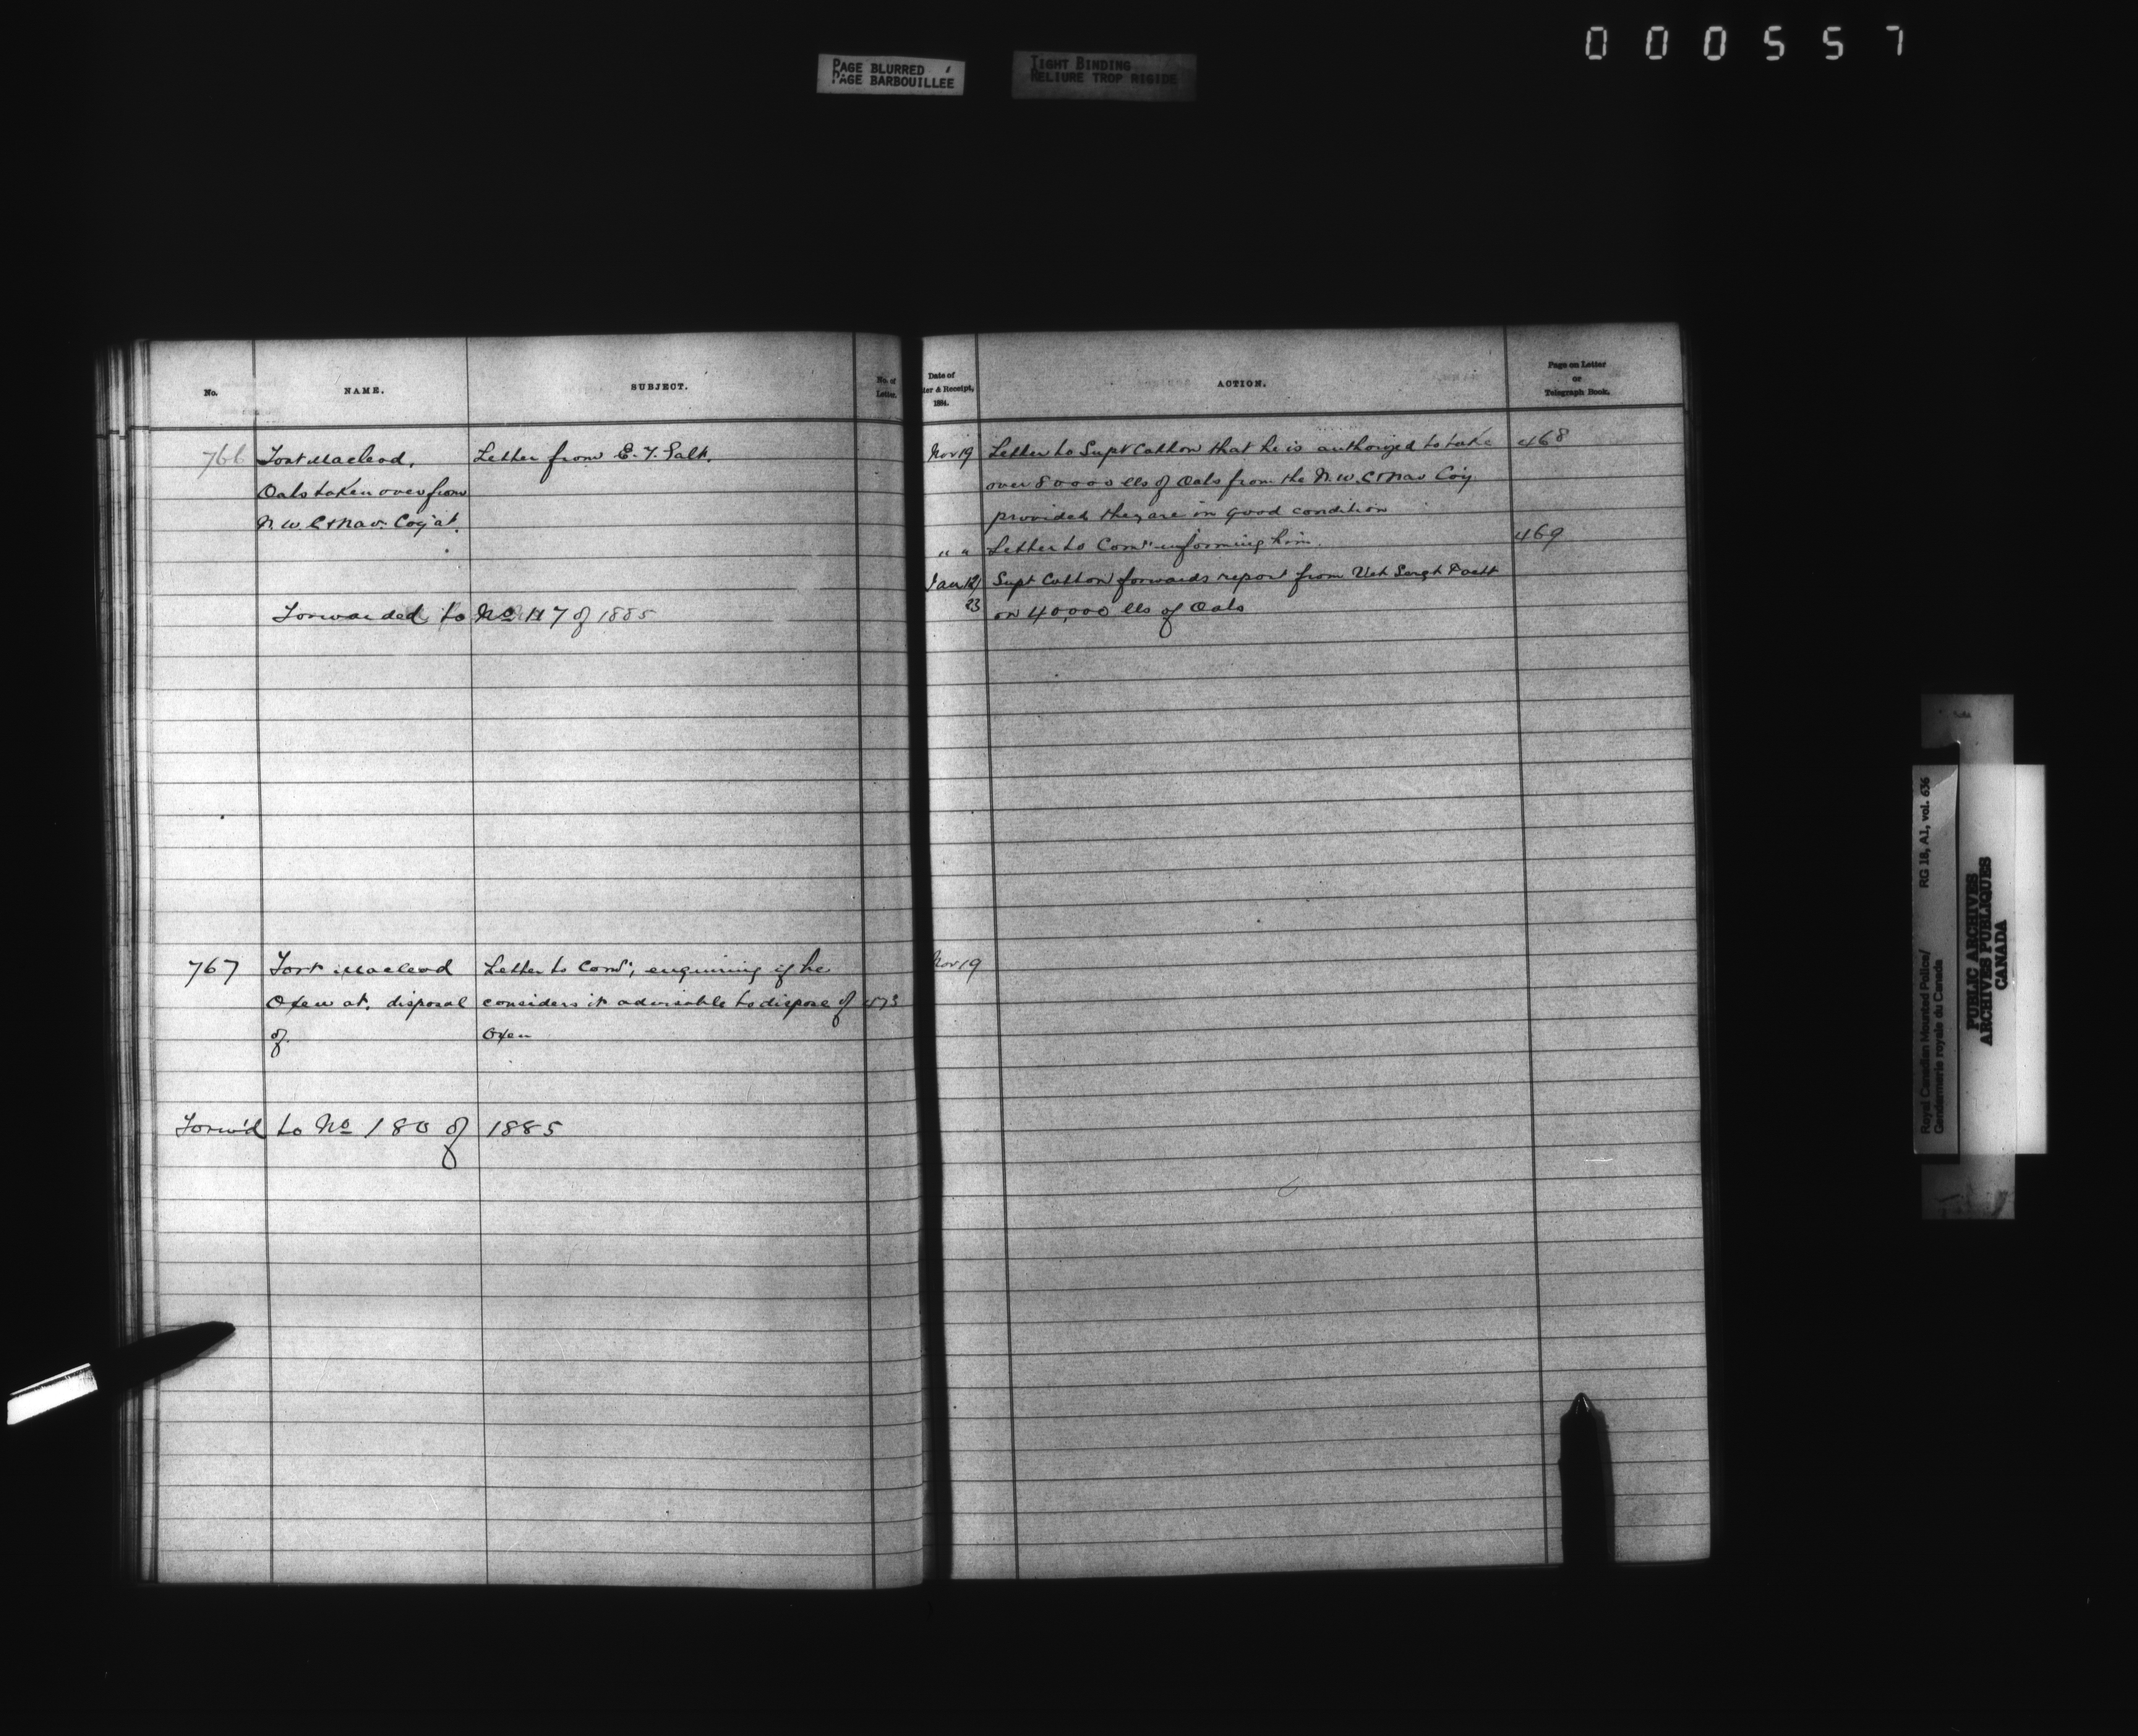 000557
PAGE BLURRED
PAGE BARBOUILLEE
TIGHT BINDING
RELIURE TROP RIGIDE
No.
NAME.
SUBJECT.
No. of
Letter.
Date of
ter & Receipt,
1884.
ACTION.
Page on Letter
or
Telegraph Book.
766 Fort Macleod, Letter from E. T. Galt.
Oats taken over from
N. W. C & Nav. Coy at.
Forwarded to No 117 of 1885
Nov 19 Letter to Supt Cotton that he is authorized to take 468
over 80000 lbs of Oats from the N. W. C & Nav Coy.
provided they are in good condition
" " Letter to Comr informing him. 469
Jan 12/ Supt Cotton forwards report from Vet Sergt
23 on 40,000 lbs of Oats
767 Fort Macleod Letter to Comr, enquiring if he Nov 19
Oxen at. disposal considers it advisable to dispose of 473
of. Oxen
Forw'd to No 180 of 1885
RG 18, A1, vol. 636
Royal Canadian Mounted Police/
Gendarmerie royale du Canada
PUBLIC ARCHIVES
ARCHIVES PUBLIQUES
CANADA